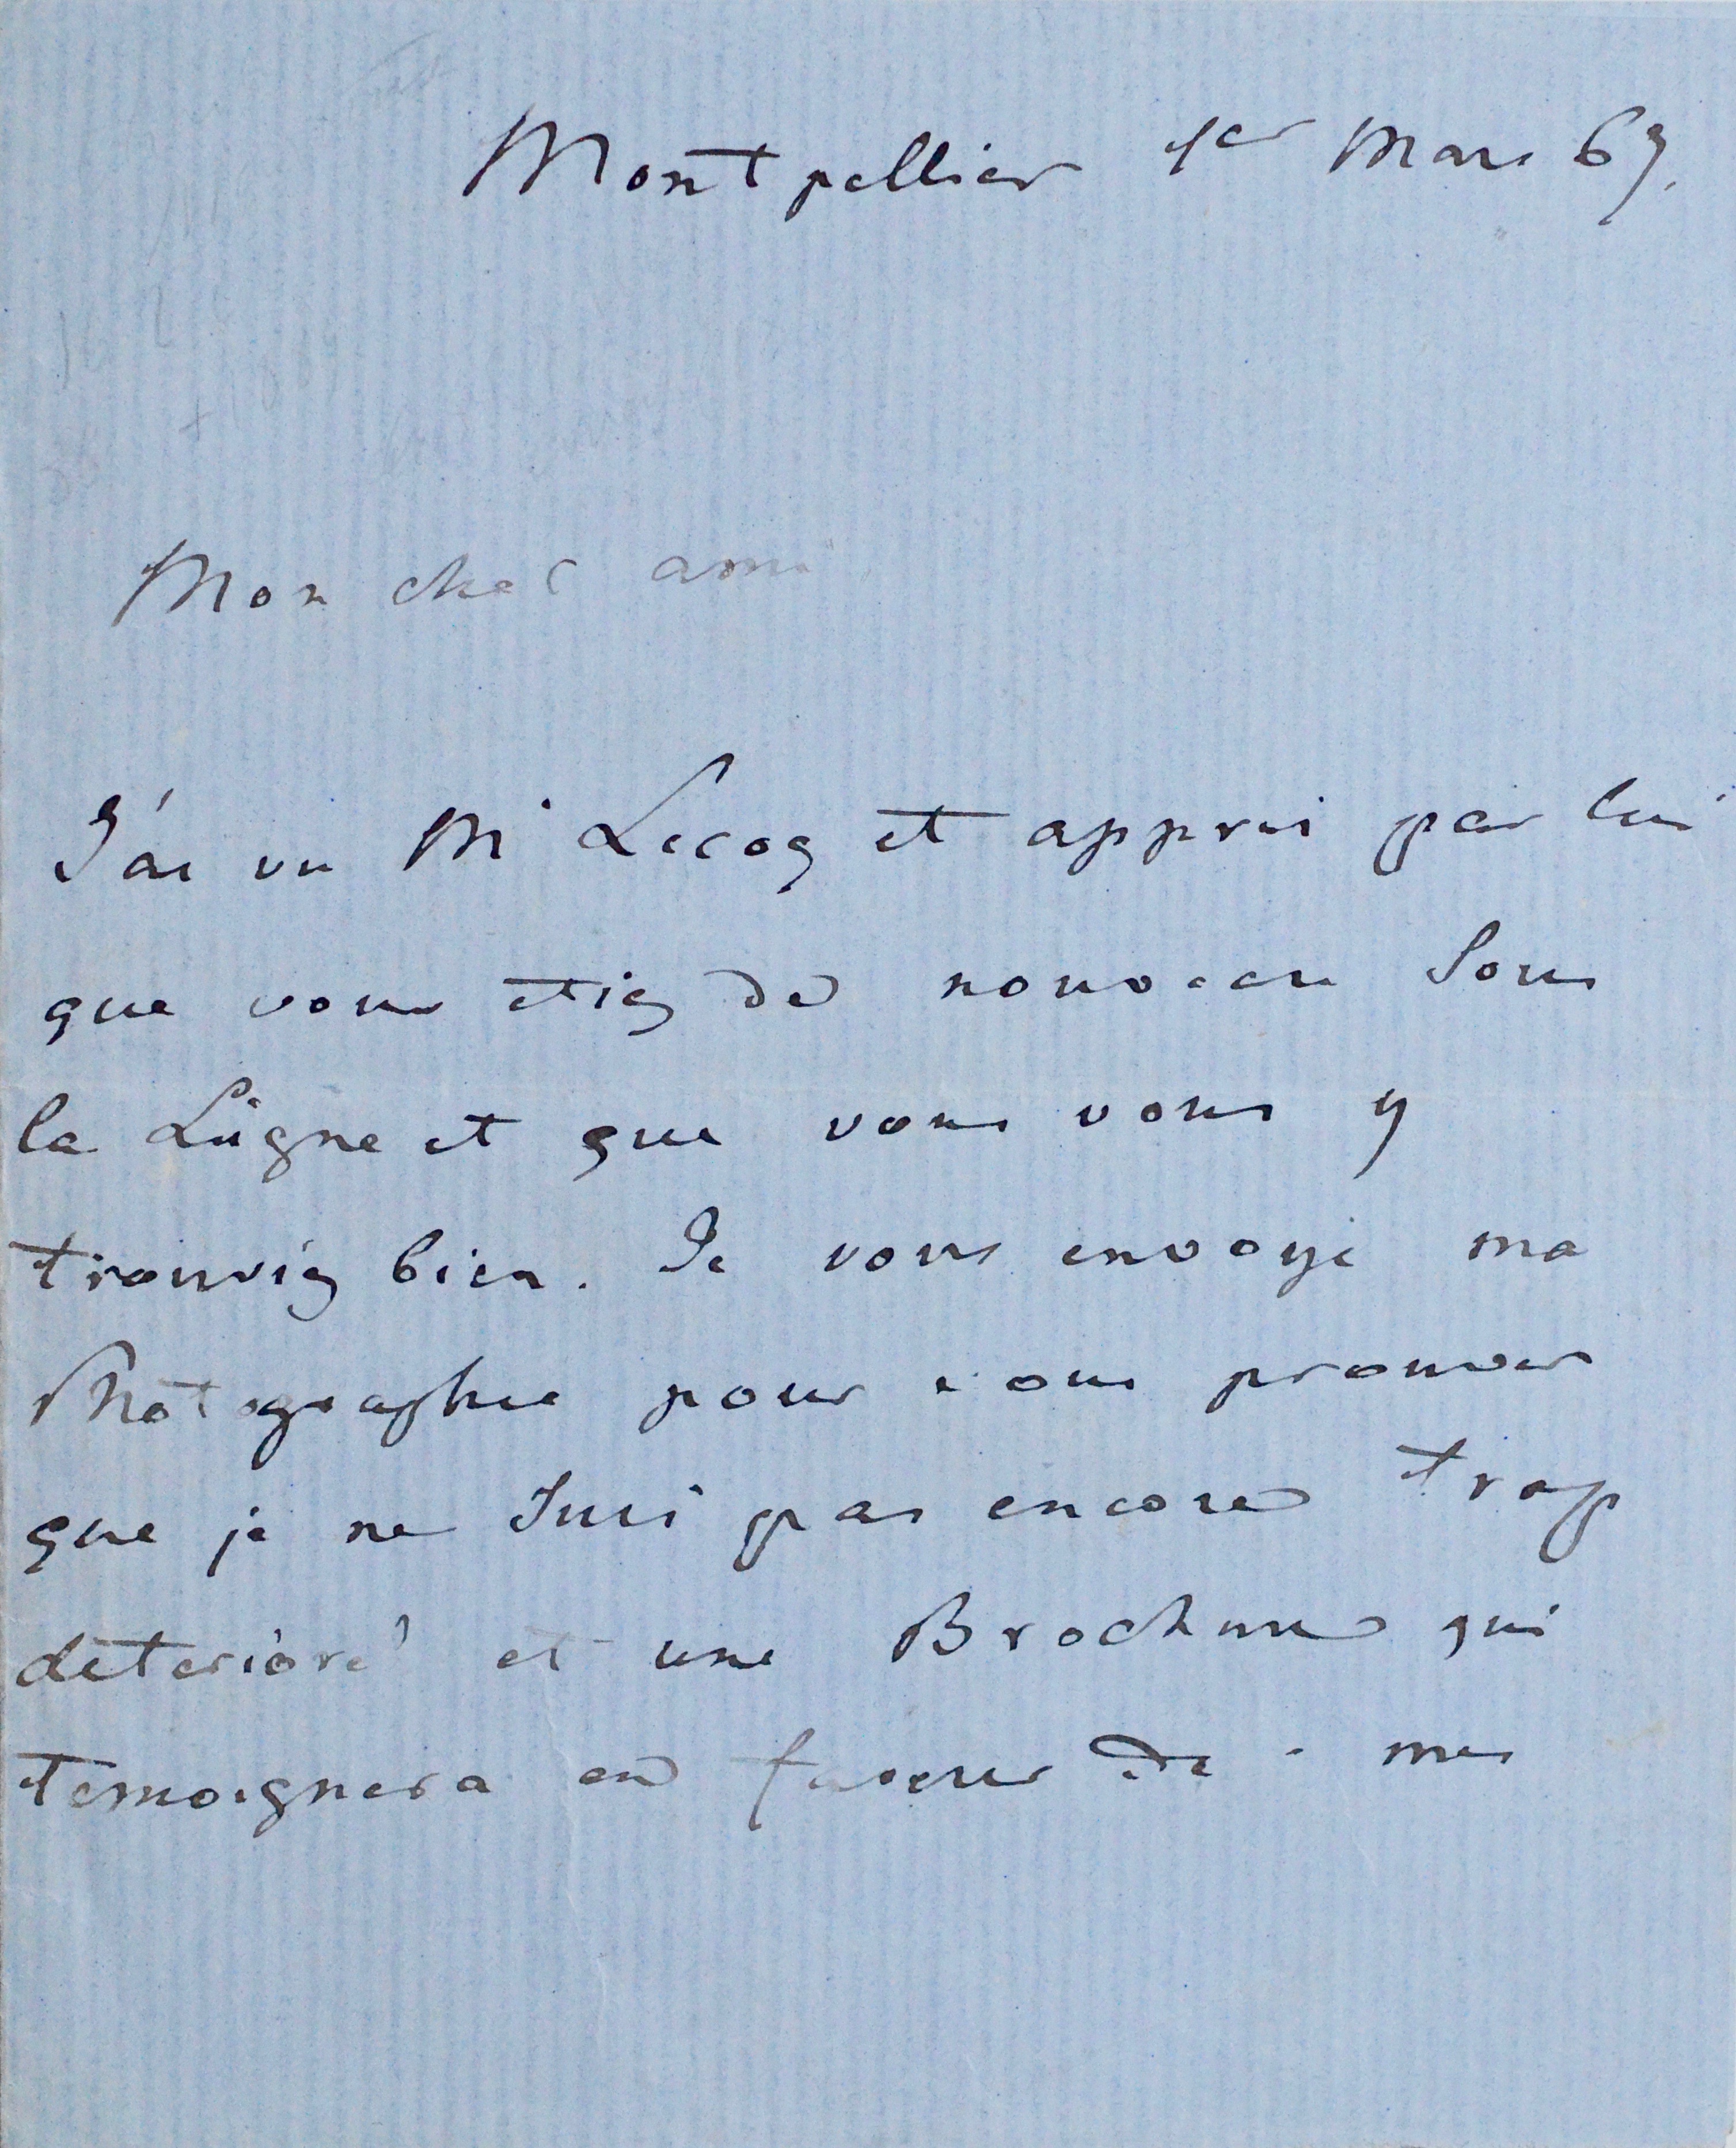 Montpellier 1er Mars 69.
Mon cher ami
J'ai vu Mr Lecoq et appris par lui
que vous etiez de nouveau Sous
la Ligne et que vous vous y
trouviez bien. Je vous envoye ma
Photographie pour vous prouver
que je ne Suis pas encore trop
deterioré et une Brochure qui
temoignera en faveur de mes